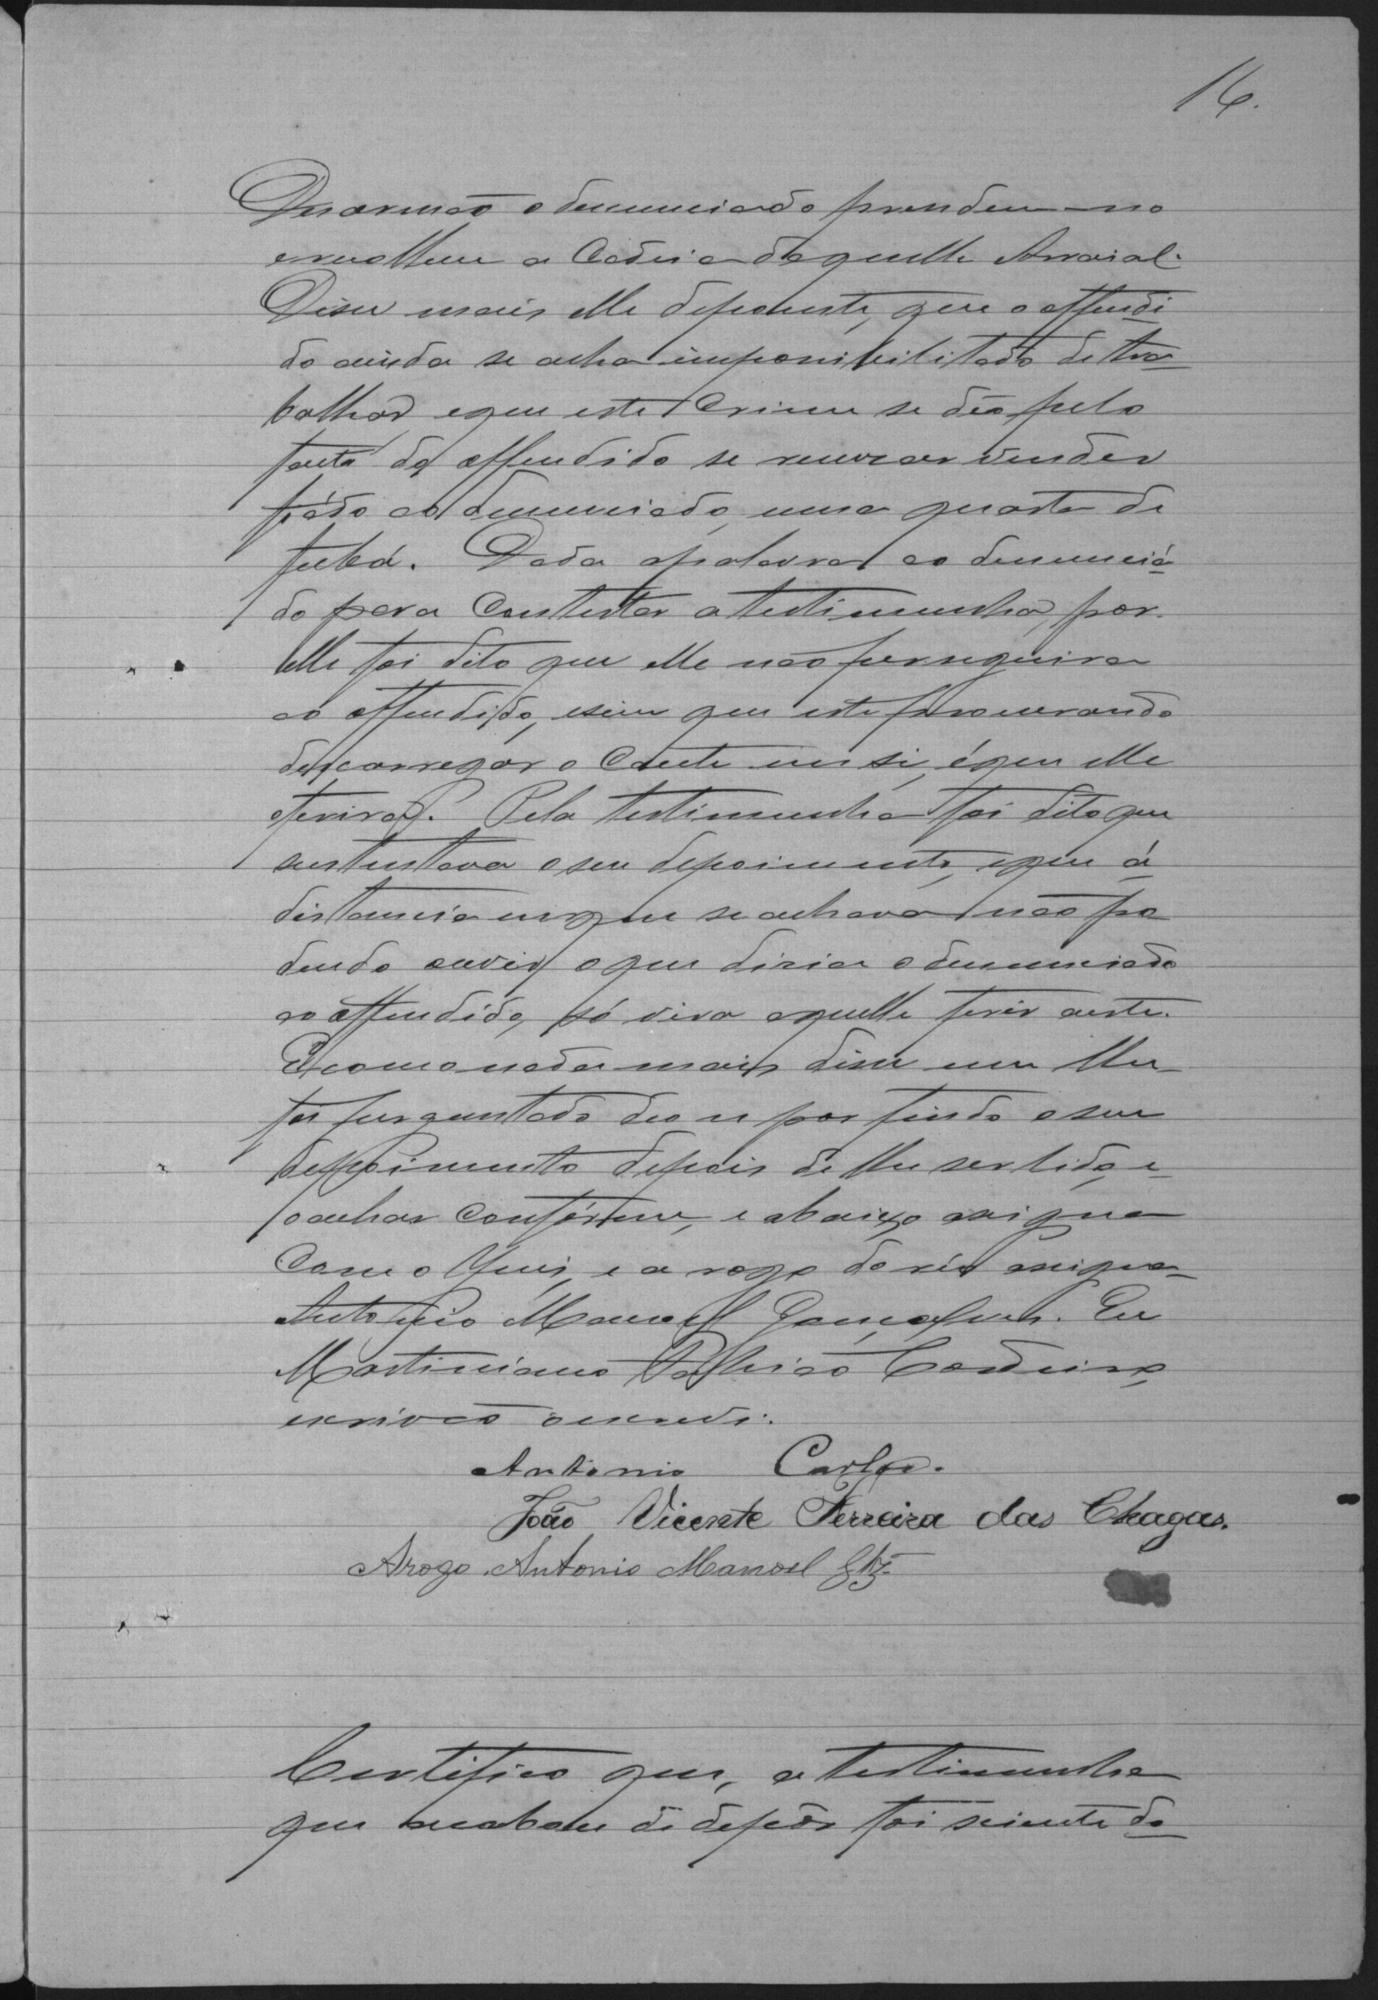 16.
Desarmão o denunciado prendeu-no
e recolheu a Cadeia daquelle Arraial.
Disse mais elle depoente, que o offendi
do ainda se acha impossibilitado de tra
balhar, e que este Crime se deo pelo
facto do offendido se recusar vender
fiádo ao denunciado, uma quarta de
fubá. Dada a palavra ao denunciá
do para Contestar a testimunha, por
elle foi dito que elle não perseguira
ao offendido, e sim que este procurando
descarregar o Cacete em si, é que elle
o ferira. Pela testimunha foi dito que
sustentava o seu depoimento, e que á
distancia em que se achava não po
dendo ouvir o que disia o denunciado
ao offendido, só vira aquelle ferir a este.
E como nada mais disse nem lhe
foi perguntado deo-se por findo o seu
depoimento depois de lhe ser lido, e
o achar confórme, e abaixo assigna
Com o Juis, e a rogo do réo assigna
Antonio Manoel Gonçalves. Eu
Martiniano Cordeiro,
escrivão o escrevi.
Antonio Carlos.
João Vicente Ferreira das Chagas.
Arogo Antonio Manoel Glz.
Certifico que, a testimunha
que acabou de depôr foi sciente do